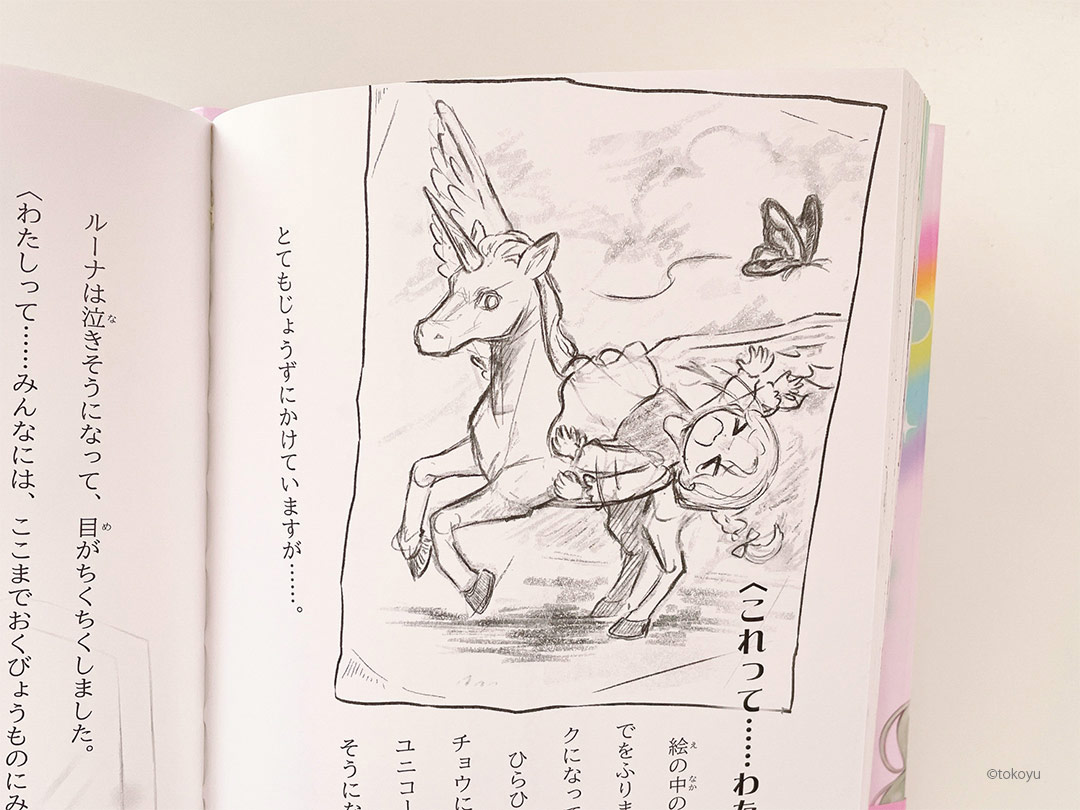 〈これって……わた
絵の中の
でをふりま
クになって
ひらひ
チョウに
ユニコー
そうにな
とてもじょうずにかけていますが……。
ルーナは泣きそうになって、目がちくちくしました。
〈わたしって……みんなには、ここまでおくびょうものにみ
©tokoyu